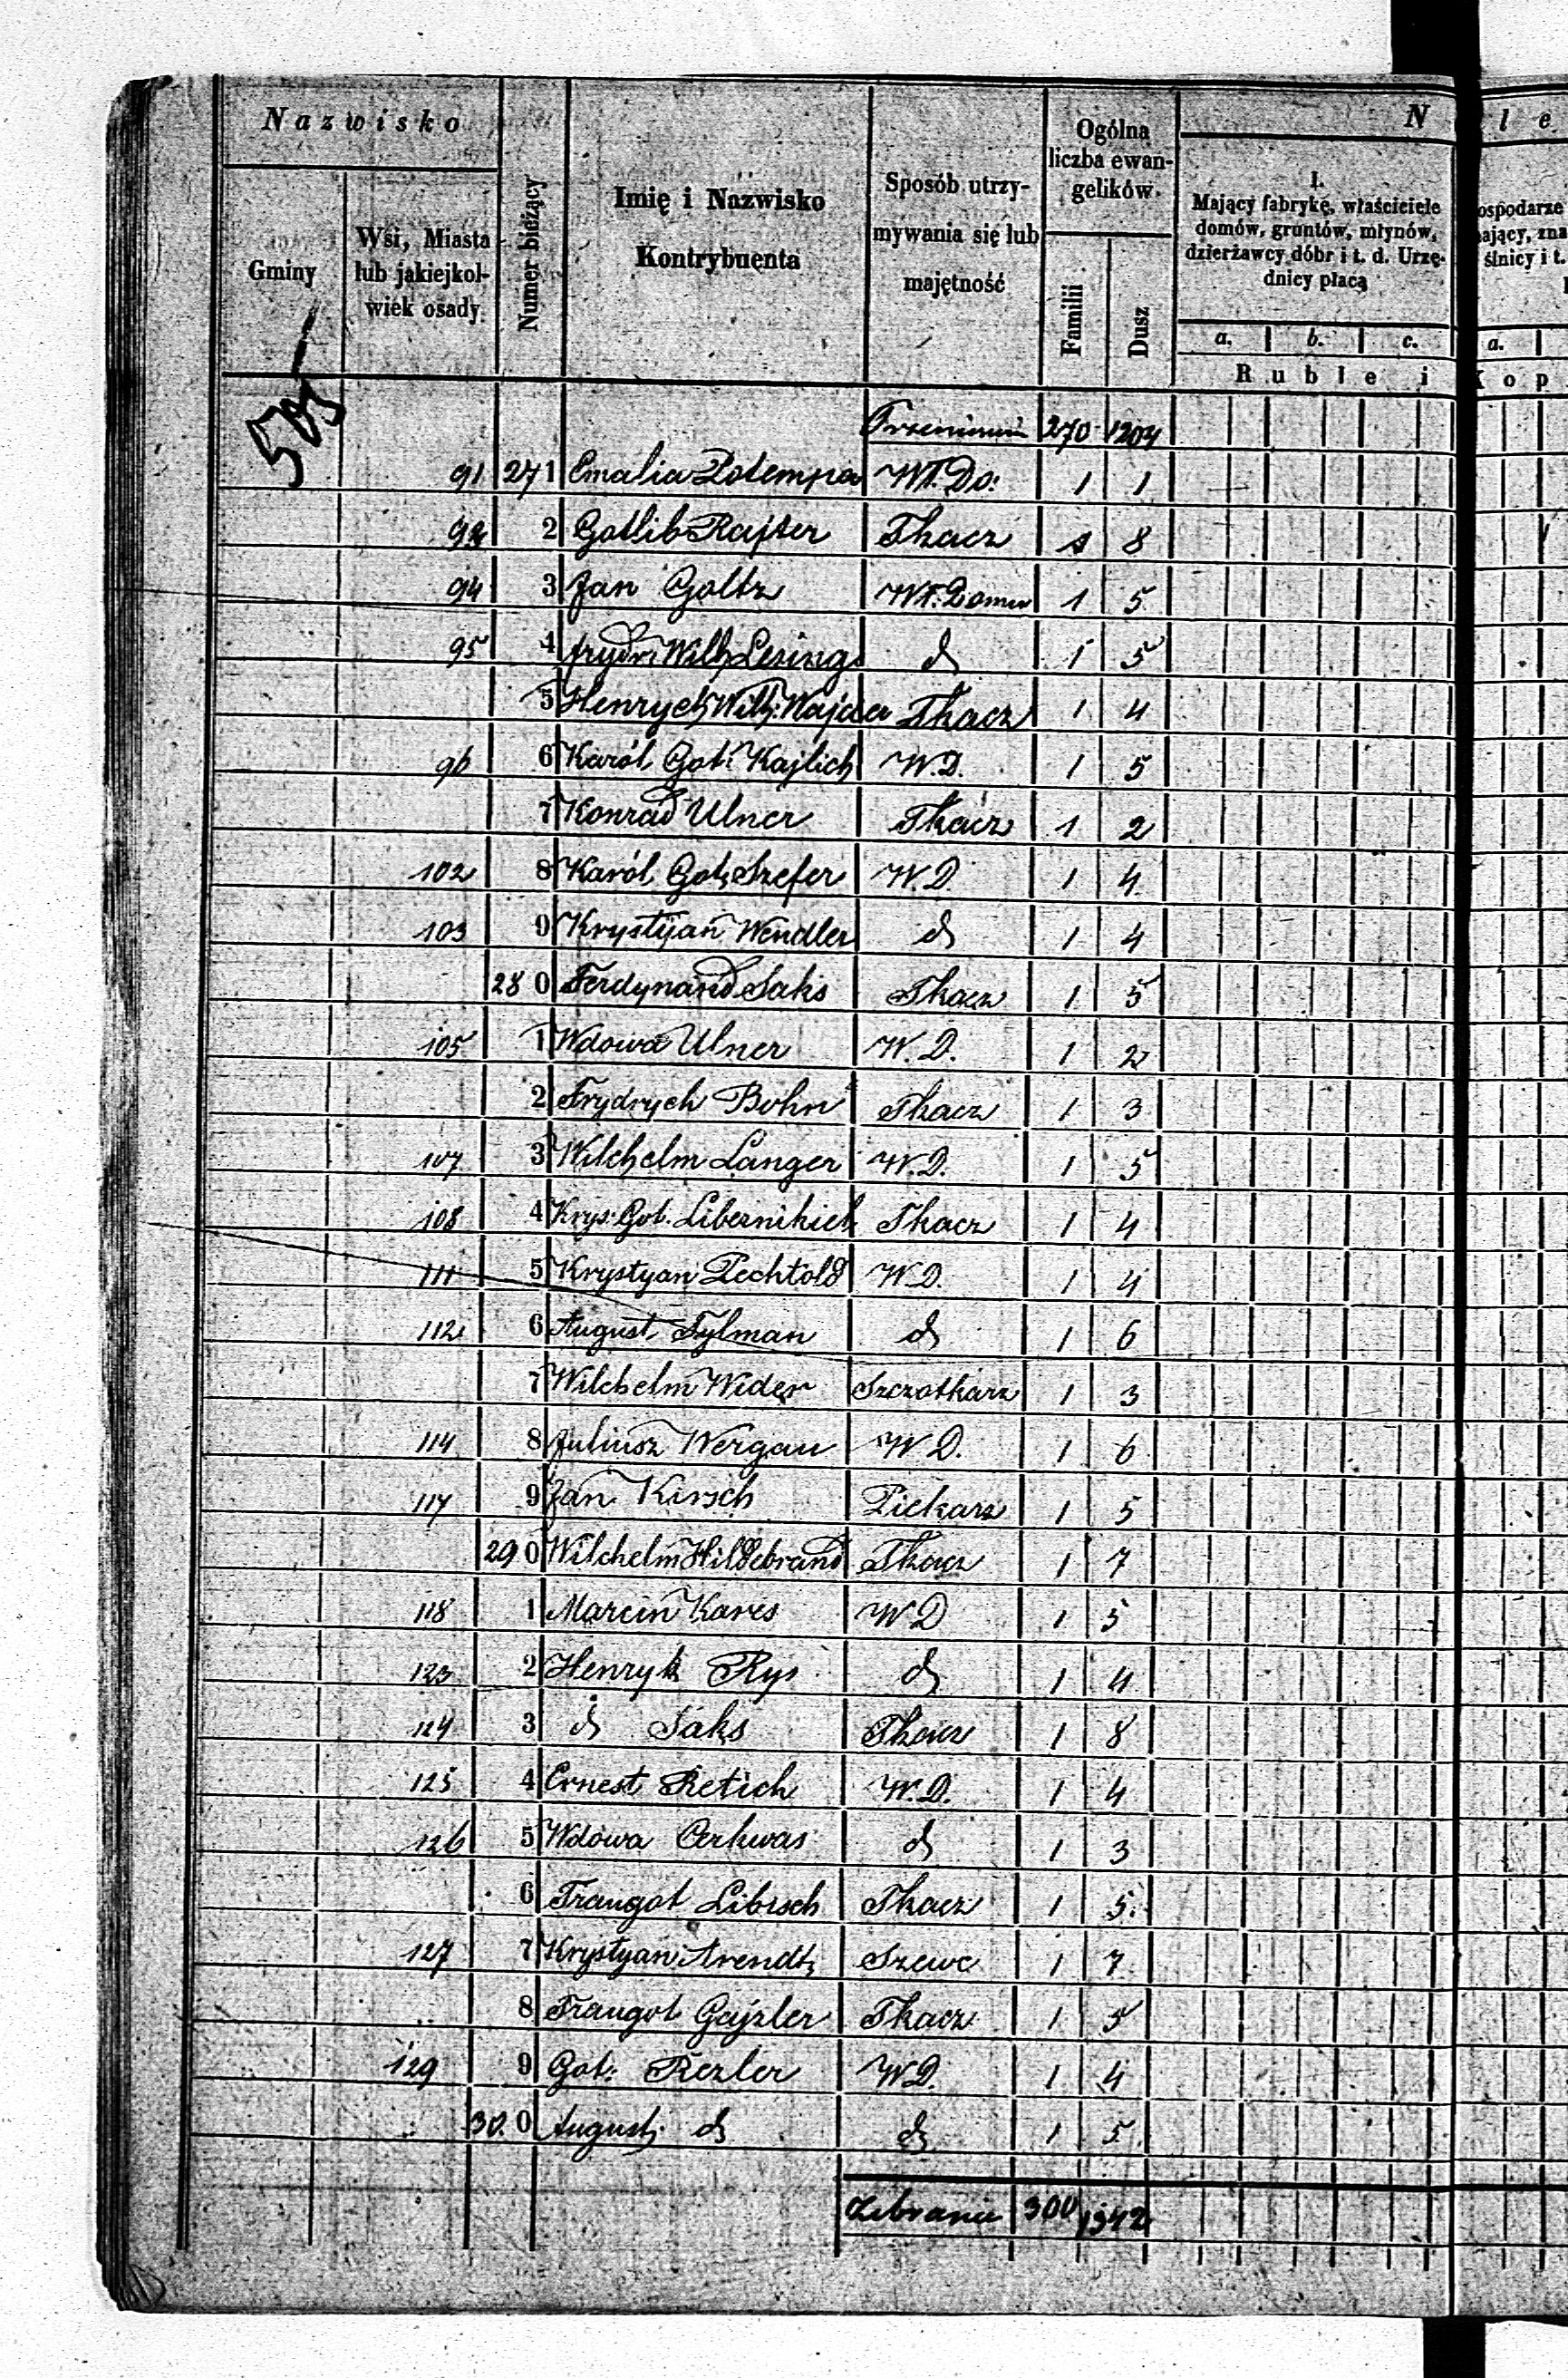 Nazwisko
Gminy
Wsi, Miasta lub jakiejkol-wiek osady.
Numer bieżący
Imię i Nazwisko Kontrybuenta
Sposób utrzy-mywania się lub majętność
Ogólna liczba ewan-gelików.
Familii
Dusz
N
I.
Mający fabrykę, właściciele domów, gruntów, młynów, dzierżawcy dóbr i t. d. Urzę-dnicy płacą
a. b. c.
Ruble i
l e
ospodarze
ający, zna
ślnicy i t.
a.
Kop
505
270 1204
91 271 Emalia Potempa Wł. Do: 1 1
2 Gotlib Rajter Tkacz 1 8
94 3 Jan Goltz Wł. Domu 1 5
95 4 Frydr. Wilh. Lesing d 1 5
5 Henrych Wilh. Tkacz 1 4
96 6 Karól Got: Kajlich W. D. 1 5
7 Konrad Ulner Tkacz 1 2
102 8 Karól Got. Szefer W. D 1 4
103 9 Krystyan Wendler d 1 4
280 Ferdynand Saks Tkacz 1 5
105 1 Wdowa Ulner W. D. 1 2
2 Frydrych Bohn Tkacz 1 3
107 3 Wilchelm Langer W. D. 1 5
108 4 Krys: Got. Tkacz 1 4
111 5 Krystyan Pechtold W D. 1 4
112 6 August Tylman d 1 6
7 Wilchelm Wider Szczotkarz 1 3
114 8 Juliusz Wergau W D. 1 6
117 9 Jan Kirsch Piekarz 1 5
290 Wilchelm Hildebrand Tkacz 1 7
118 1 Marcin Kares W D 1 5
123 2 Henryk Rys d 1 4
124 3 d Saks Tkacz 1 8
125 4 Ernest Retich W. D. 1 4
126 5 Wdowa Cerkwas d 1 3
6 Traugot Libisch Tkacz 1 5.
127 7 Krystyan Arendt Szewc 1 7
8 Traugot Gajzler Tkacz 1 5
129 9 Got: Rezler W D. 1 4
300 August d d 1 5
300 1342